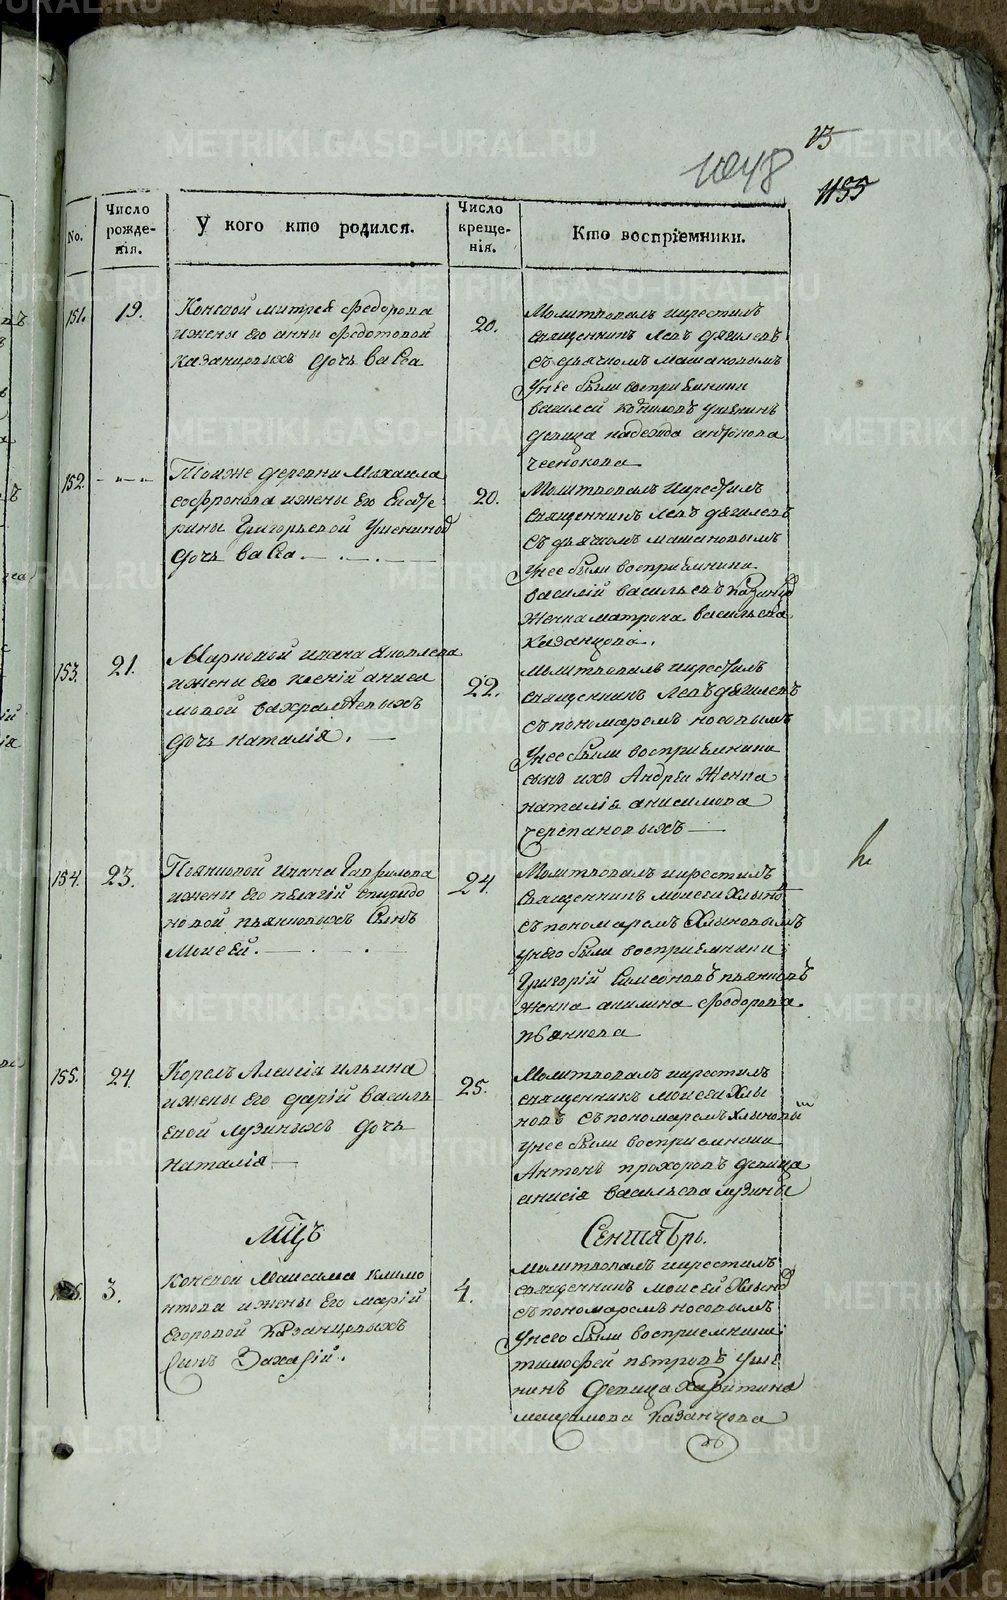 13
1048
1155
No.
Число рожде-нія.
У кого кто родился.
Число креще-нія.
Кто воспріемники.
151.
19.
Коневой митрея Федорова
ижены его анны Федотовой
казанцовыхъ дочь васса
20.
Молитвовалъ икрестилъ
священникъ Левъ дягилевъ
съ дьячкомъ машановымъ
Унее были восприемники
василей
девица надежда антонова
чеснокова
152.
— „ — „ —
Тоиже деревни Михаила
софронова ижены его Екате
рины Григорьевой
дочь васса . — . — . — —
20.
Молитвовалъ икрестилъ
священникъ Левъ дягилевъ
съ дьячкомъ машановымъ
Унее были восприемники
василий васильевъ
женка матрона васильева
казанцова.
153.
21.
Марковой ивана яковлева
ижены его ксений аниси
мовой вахрамѣевыхъ
дочь наталія. —
22.
Молитвовалъ икрестилъ
священникъ Левъ дягилевъ
съ пономаремъ носовымъ
Унее были восприемники
сынъ ихъ Андреи Женка
наталія анисимова
черепановыхъ —
154.
23.
Пьянковой ивана Гаврилова
ижены его пелагий спиридо
новой пьянковыхъ сынъ
Моисей. — . .
24.
Молитвовалъ икрестилъ
священникъ моисеи Хлыно
съ пономаремъ Хлыновымъ
Унего были восприемники
Григорій Симеоновъ пьянковъ
женка акилина Феодорова
пьянкова
155.
24.
Корелъ Алексія ильина
ижены его дарій василь
евой лузиныхъ дочь
наталія —
25.
Молитвовалъ икрестилъ
священникъ моисеи Хлы
новъ съ пономаремъ Хлыновым
Унее были восприемники
Антонъ прохоровъ девица
анисія васильева лузины
Мцъ
Сентябрь.
156.
3.
коневой Максима климо
нтова ижены его марій
егоровой казанцовыхъ
сынъ Захарій.
4.
молитвовалъ икрестилъ
священникъ моисей Хлыно
съ пономаремъ носовымъ
Унего были восприемники
тимофей петровъ уше
нинъ девица Харитина
максимова казанцова